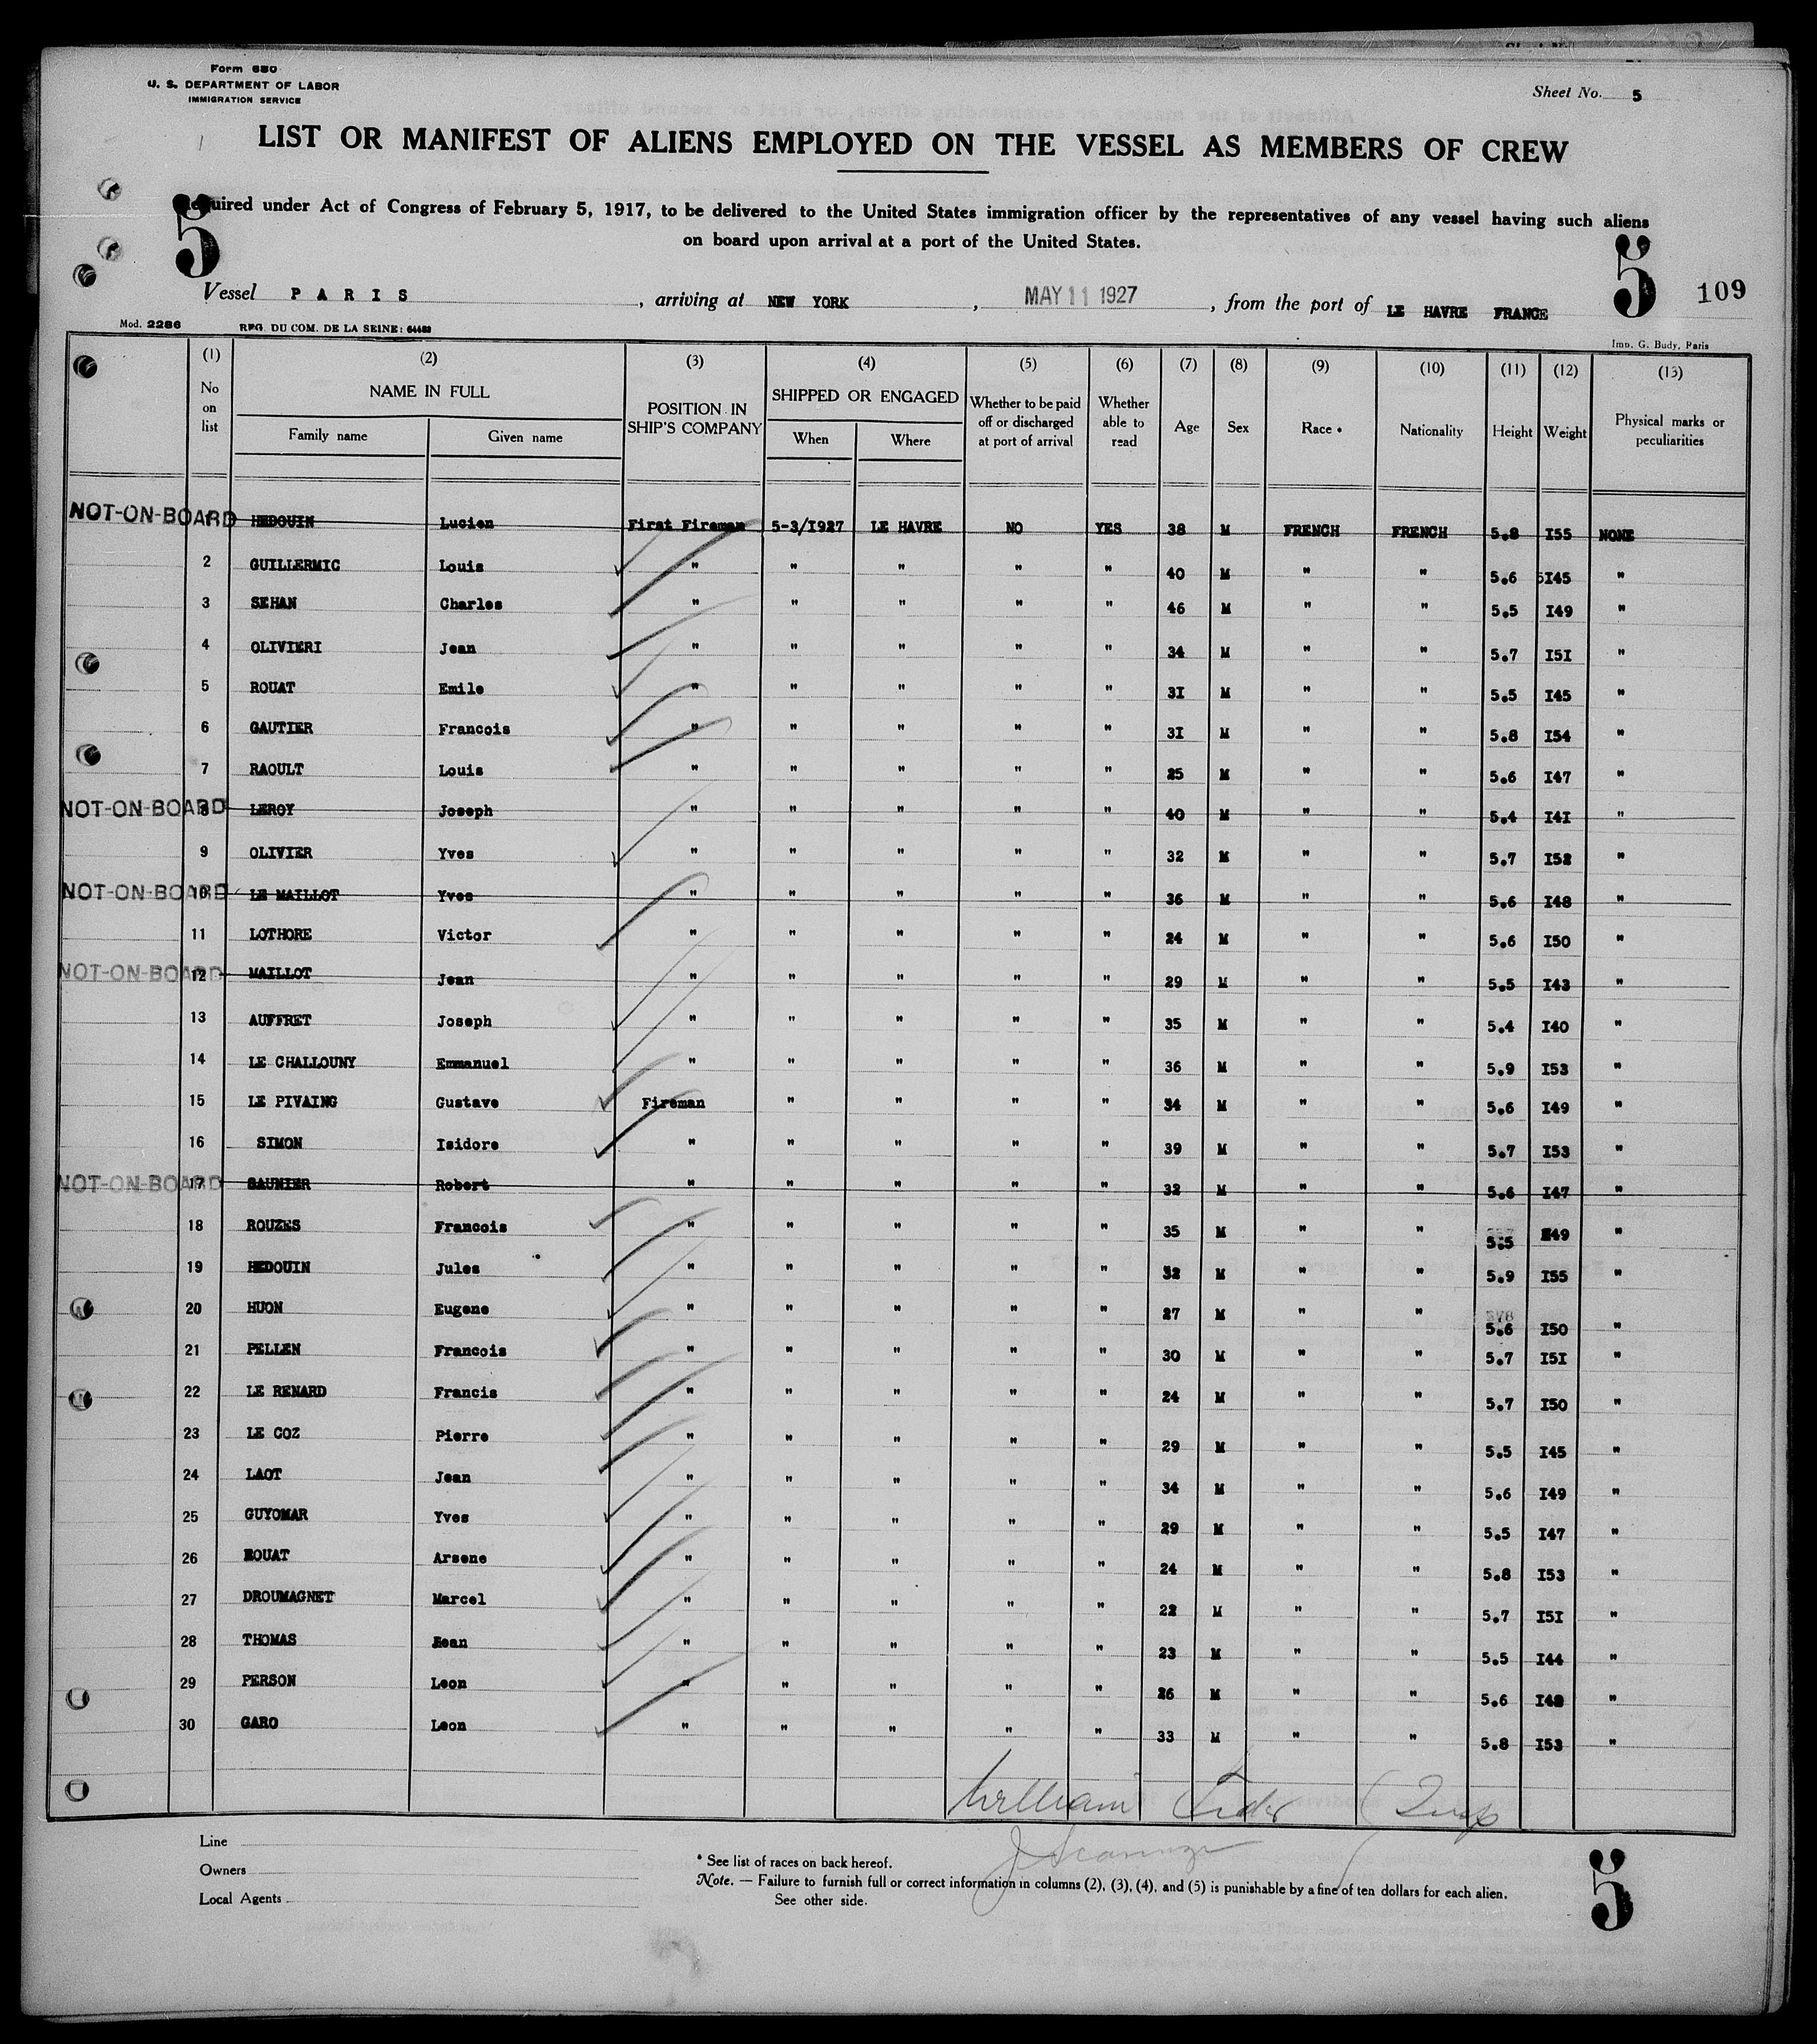 Form 680
U. S. DEPARTMENT OF LABOR
IMMIGRATION SERVICE
Sheet No. 5
LIST OR MANIFEST OF ALIENS EMPLOYED ON THE VESSEL AS MEMBERS OF CREW
Required under Act of Congress of February 5, 1917, to be delivered to the United States immigration officer by the representatives of any vessel having such aliens
on board upon arrival at a port of the United States.
5
5 109
Vessel PARIS, arriving at NEW YORK, MAY 11 1927, from the port of LE HAVRE FRANCE
Mod. 2286 REG. DU COM. DE LA SEINE: 64483
Imp. G. Budy, Paris
(1) (2) (3) (4) (5) (6) (7) (8) (9) (10) (11) (12) (13)
No on list NAME IN FULL POSITION IN SHIP'S COMPANY SHIPPED OR ENGAGED Whether to be paid off or discharged at port of arrival Whether able to read Age Sex Race * Nationality Height Weight Physical marks or peculiarities
Family name Given name When Where
NOT-ON-BOARD 1 HEDOUIN Lucien First Fireman 5-3/I927 LE HAVRE NO YES 38 M FRENCH FRENCH 5.8 I55 NONE
2 GUILLERMIC Louis " " " " " 40 M " " 5.6 I45 "
3 SEHAN Charles " " " " " 46 M " " 5.5 I49 "
4 OLIVIERI Jean " " " " " 34 M " " 5.7 I5I "
5 ROUAT Emile " " " " " 3I M " " 5.5 I45 "
6 GAUTIER Francois " " " " " 3I M " " 5.8 I54 "
7 RAOULT Louis " " " " " 25 M " " 5.6 I47 "
NOT-ON-BOARD 8 LEROY Joseph " " " " " 40 M " " 5.4 I4I "
9 OLIVIER Yves " " " " " 32 M " " 5.7 I52 "
NOT-ON-BOARD 10 LE MAILLOT Yves " " " " " 36 M " " 5.6 I48 "
11 LOTHORE Victor " " " " " 24 M " " 5.6 I50 "
NOT-ON-BOARD 12 MAILLOT Jean " " " " " 29 M " " 5.5 I43 "
13 AUFFRET Joseph " " " " " 35 M " " 5.4 I40 "
14 LE CHALLOUNY Emmanuel " " " " " 36 M " " 5.9 I53 "
15 LE PIVAING Gustave Fireman " " " " 34 M " " 5.6 I49 "
16 SIMON Isidore " " " " " 39 M " " 5.7 I53 "
NOT-ON-BOARD 17 SAUNIER Robert " " " " " 32 M " " 5.6 I47 "
18 ROUZES Francois " " " " " 35 M " " 5.5 I49 "
19 HEDOUIN Jules " " " " " 32 M " " 5.9 I55 "
20 HUON Eugene " " " " " 27 M " " 5.6 I50 "
21 PELLEN Francois " " " " " 30 M " " 5.7 I5I "
22 LE RENARD Francis " " " " " 24 M " " 5.7 I50 "
23 LE COZ Pierre " " " " " 29 M " " 5.5 I45 "
24 LAOT Jean " " " " " 34 M " " 5.6 I49 "
25 GUYOMAR Yves " " " " " 29 M " " 5.5 I47 "
26 ROUAT Arsene " " " " " 24 M " " 5.8 I53 "
27 DROUMAGNET Marcel " " " " " 22 M " " 5.7 I5I "
28 THOMAS Jean " " " " " 23 M " " 5.5 I44 "
29 PERSON Leon " " " " " 26 M " " 5.6 I48 "
30 GARO Leon " " " " " 33 M " " 5.8 I53 "
William
Line
Owners
Local Agents
* See list of races on back hereof.
Note. — Failure to furnish full or correct information in columns (2), (3), (4), and (5) is punishable by a fine of ten dollars for each alien.
See other side.
5